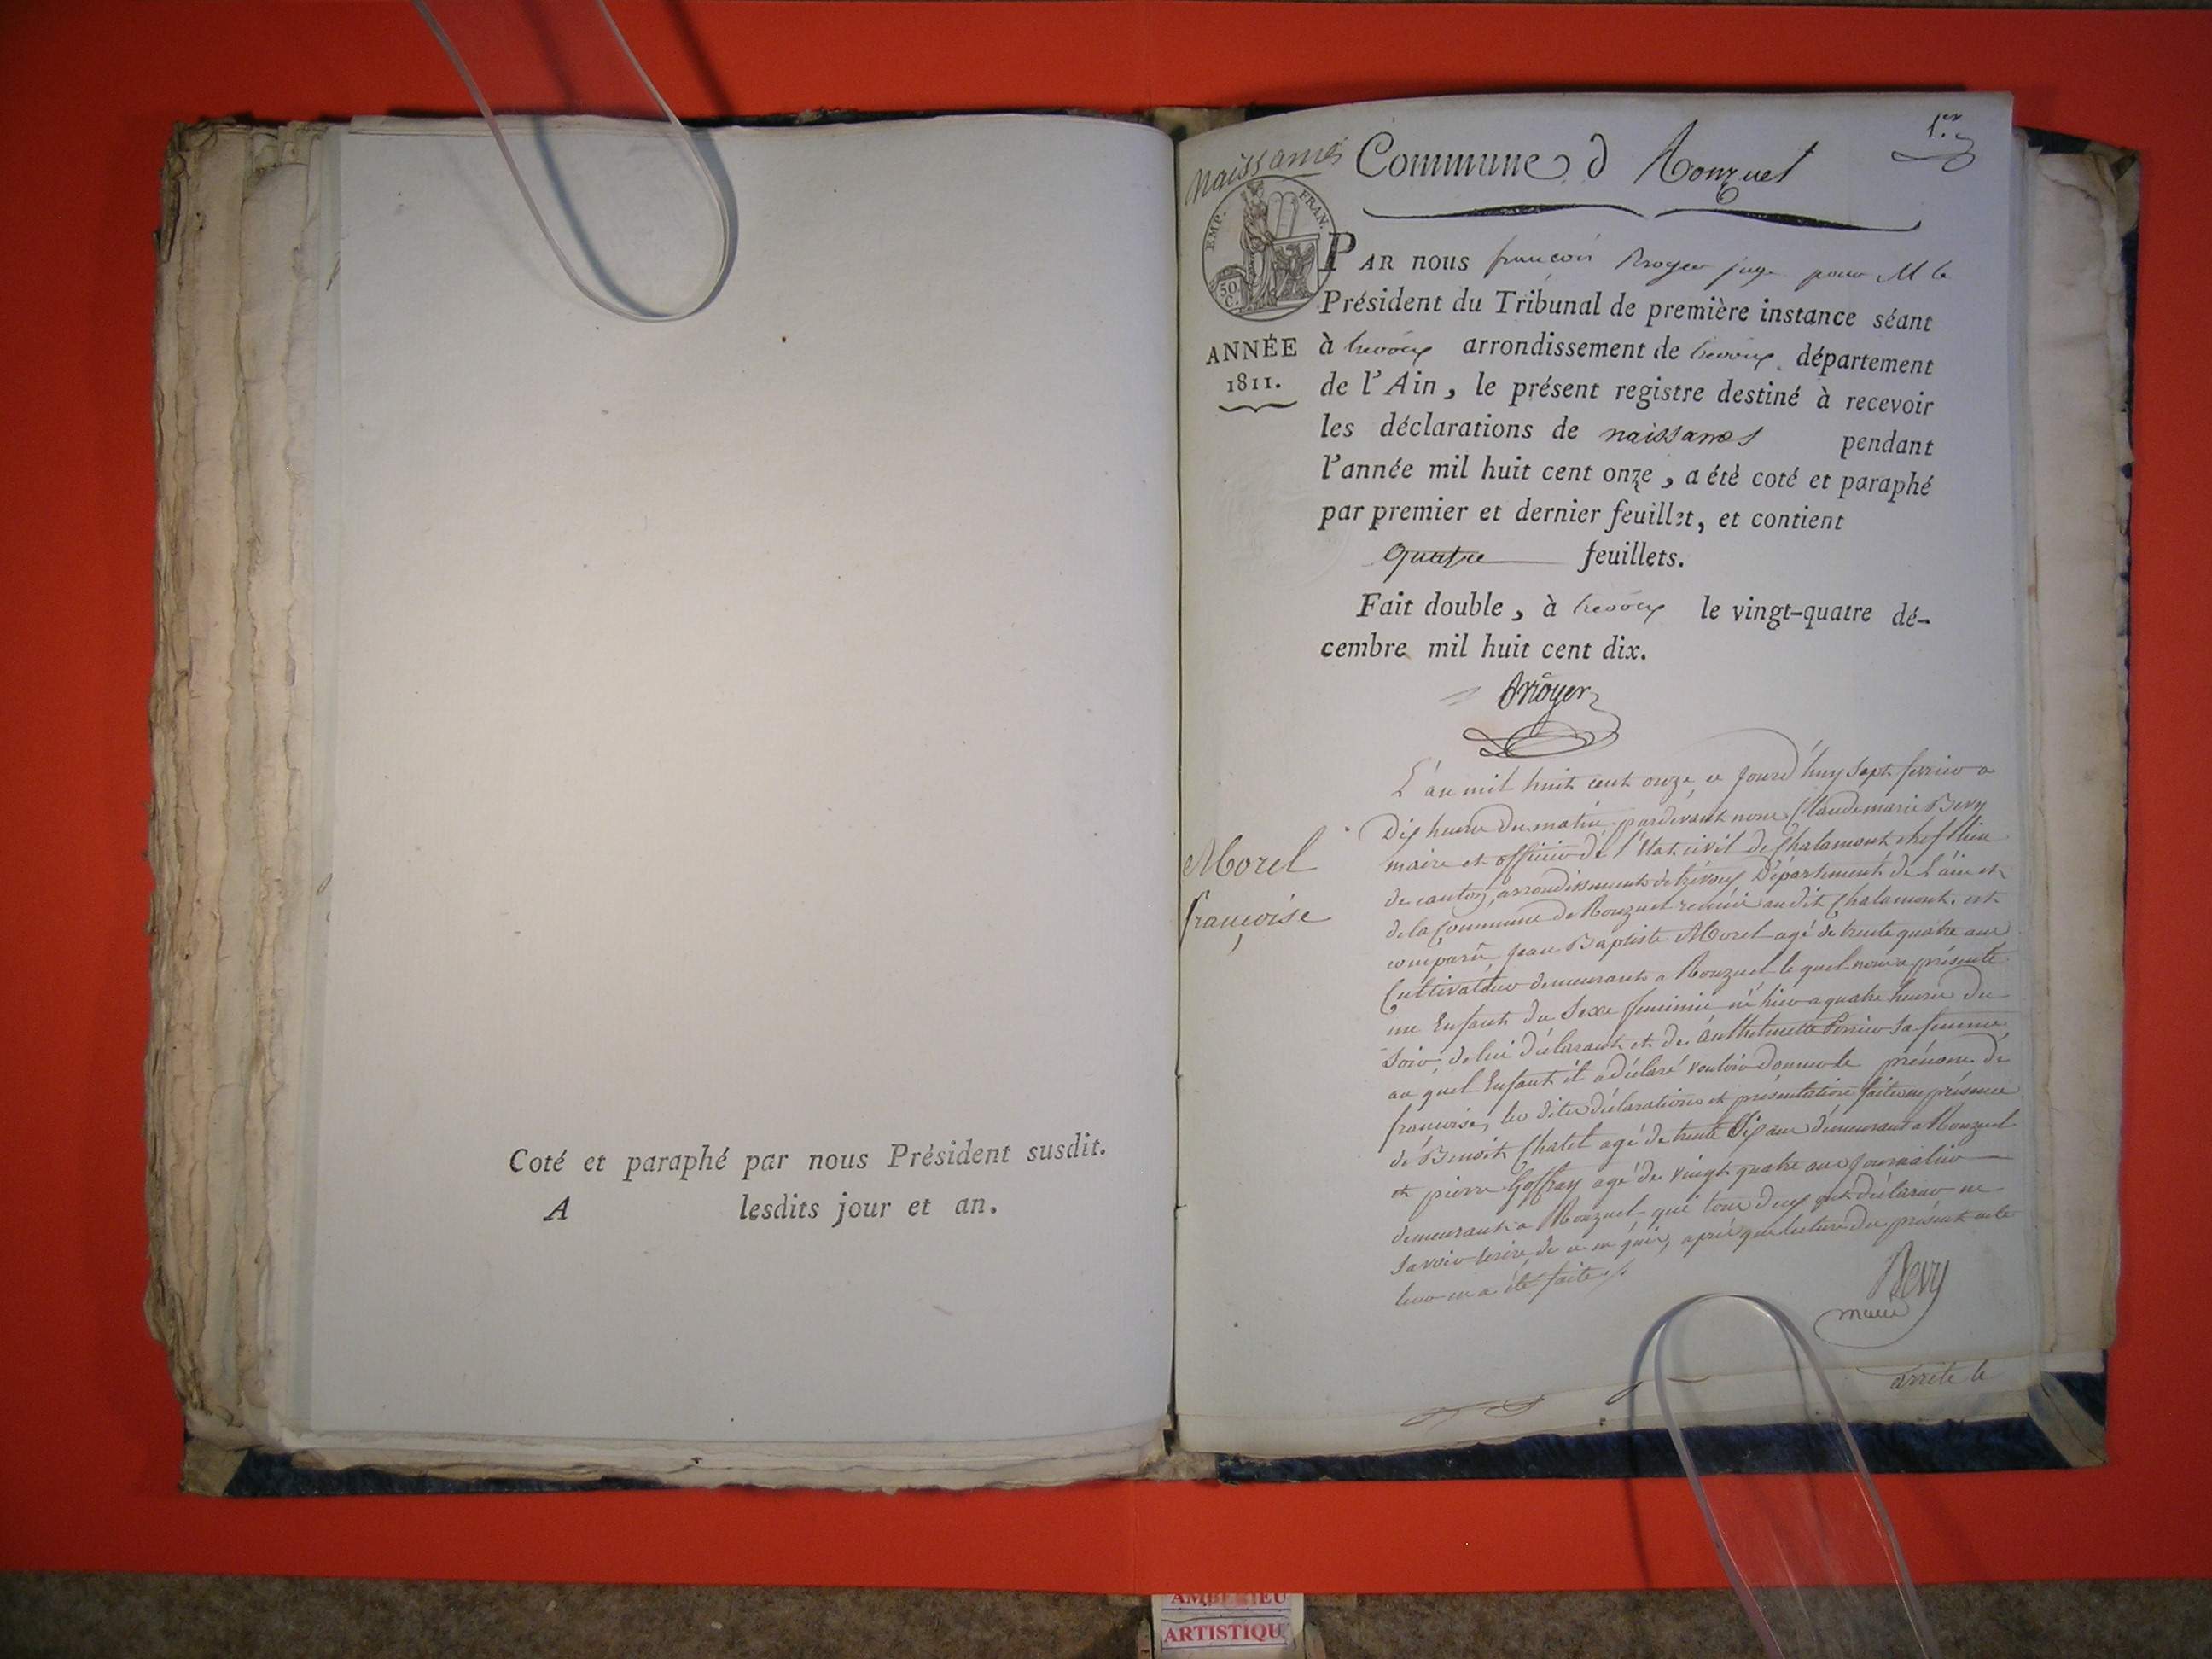 Coté et paraphé par nous Président susdit.
A lesdits jour et an.
1.er
naissances
Commune d Ronzuel
EMP. FRAN.
50 C.
ANNÉE
1811.
PAR nous françois Brroyer juge pour M le
Président du Tribunal de première instance séant
à trevoux arrondissement de trevoux département
de l'Ain, le présent registre destiné à recevoir
les déclarations de naissances pendant
l'année mil huit cent onze, a été coté et paraphé
par premier et dernier feuillet, et contient
quatre feuillets.
Fait double, à trevoux le vingt-quatre dé-
cembre mil huit cent dix.
Morel
françoise
L'an mil huit cent onze, ce jourd'huy sept fevrier a
Dix heures du matin pardevant nous Claudemarie Bevy
maire et officier de l'Etat civil de Chalamont chef lieu
de canton, arrondissement de trévoux Département de l'ain et
de la Commune de Ronzuel reunie audit Chalamont. est
comparu Jean Baptiste Morel agé de trente quatre ans
Cultivateur demeurant a Ronzuel le quel nous a présenté
un Enfant du Sexe feminin né hier a quatre heures du
Soir, de lui déclarant et de Anthelmette Perrier sa femme
au quel Enfant il a déclaré vouloir donner le prénom de
françoise, les dites déclarations et présentation faites en présence
de Benoit Chatel agé de trente Six ans demeurant a Ronzuel
et pierre Goffray agé de vingt quatre ans journalier
demeurant a Ronzuel qui tous deux ont déclarer ne
savoir écrire, de ce enquis, après que lecture du présent acte
leur en a été faite./.
Bevy
maire
arrêté le
AMBERIEU
ARTISTIQU